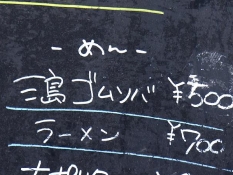 -めん-
三島ゴムソバ ¥500
ラーメン ¥700